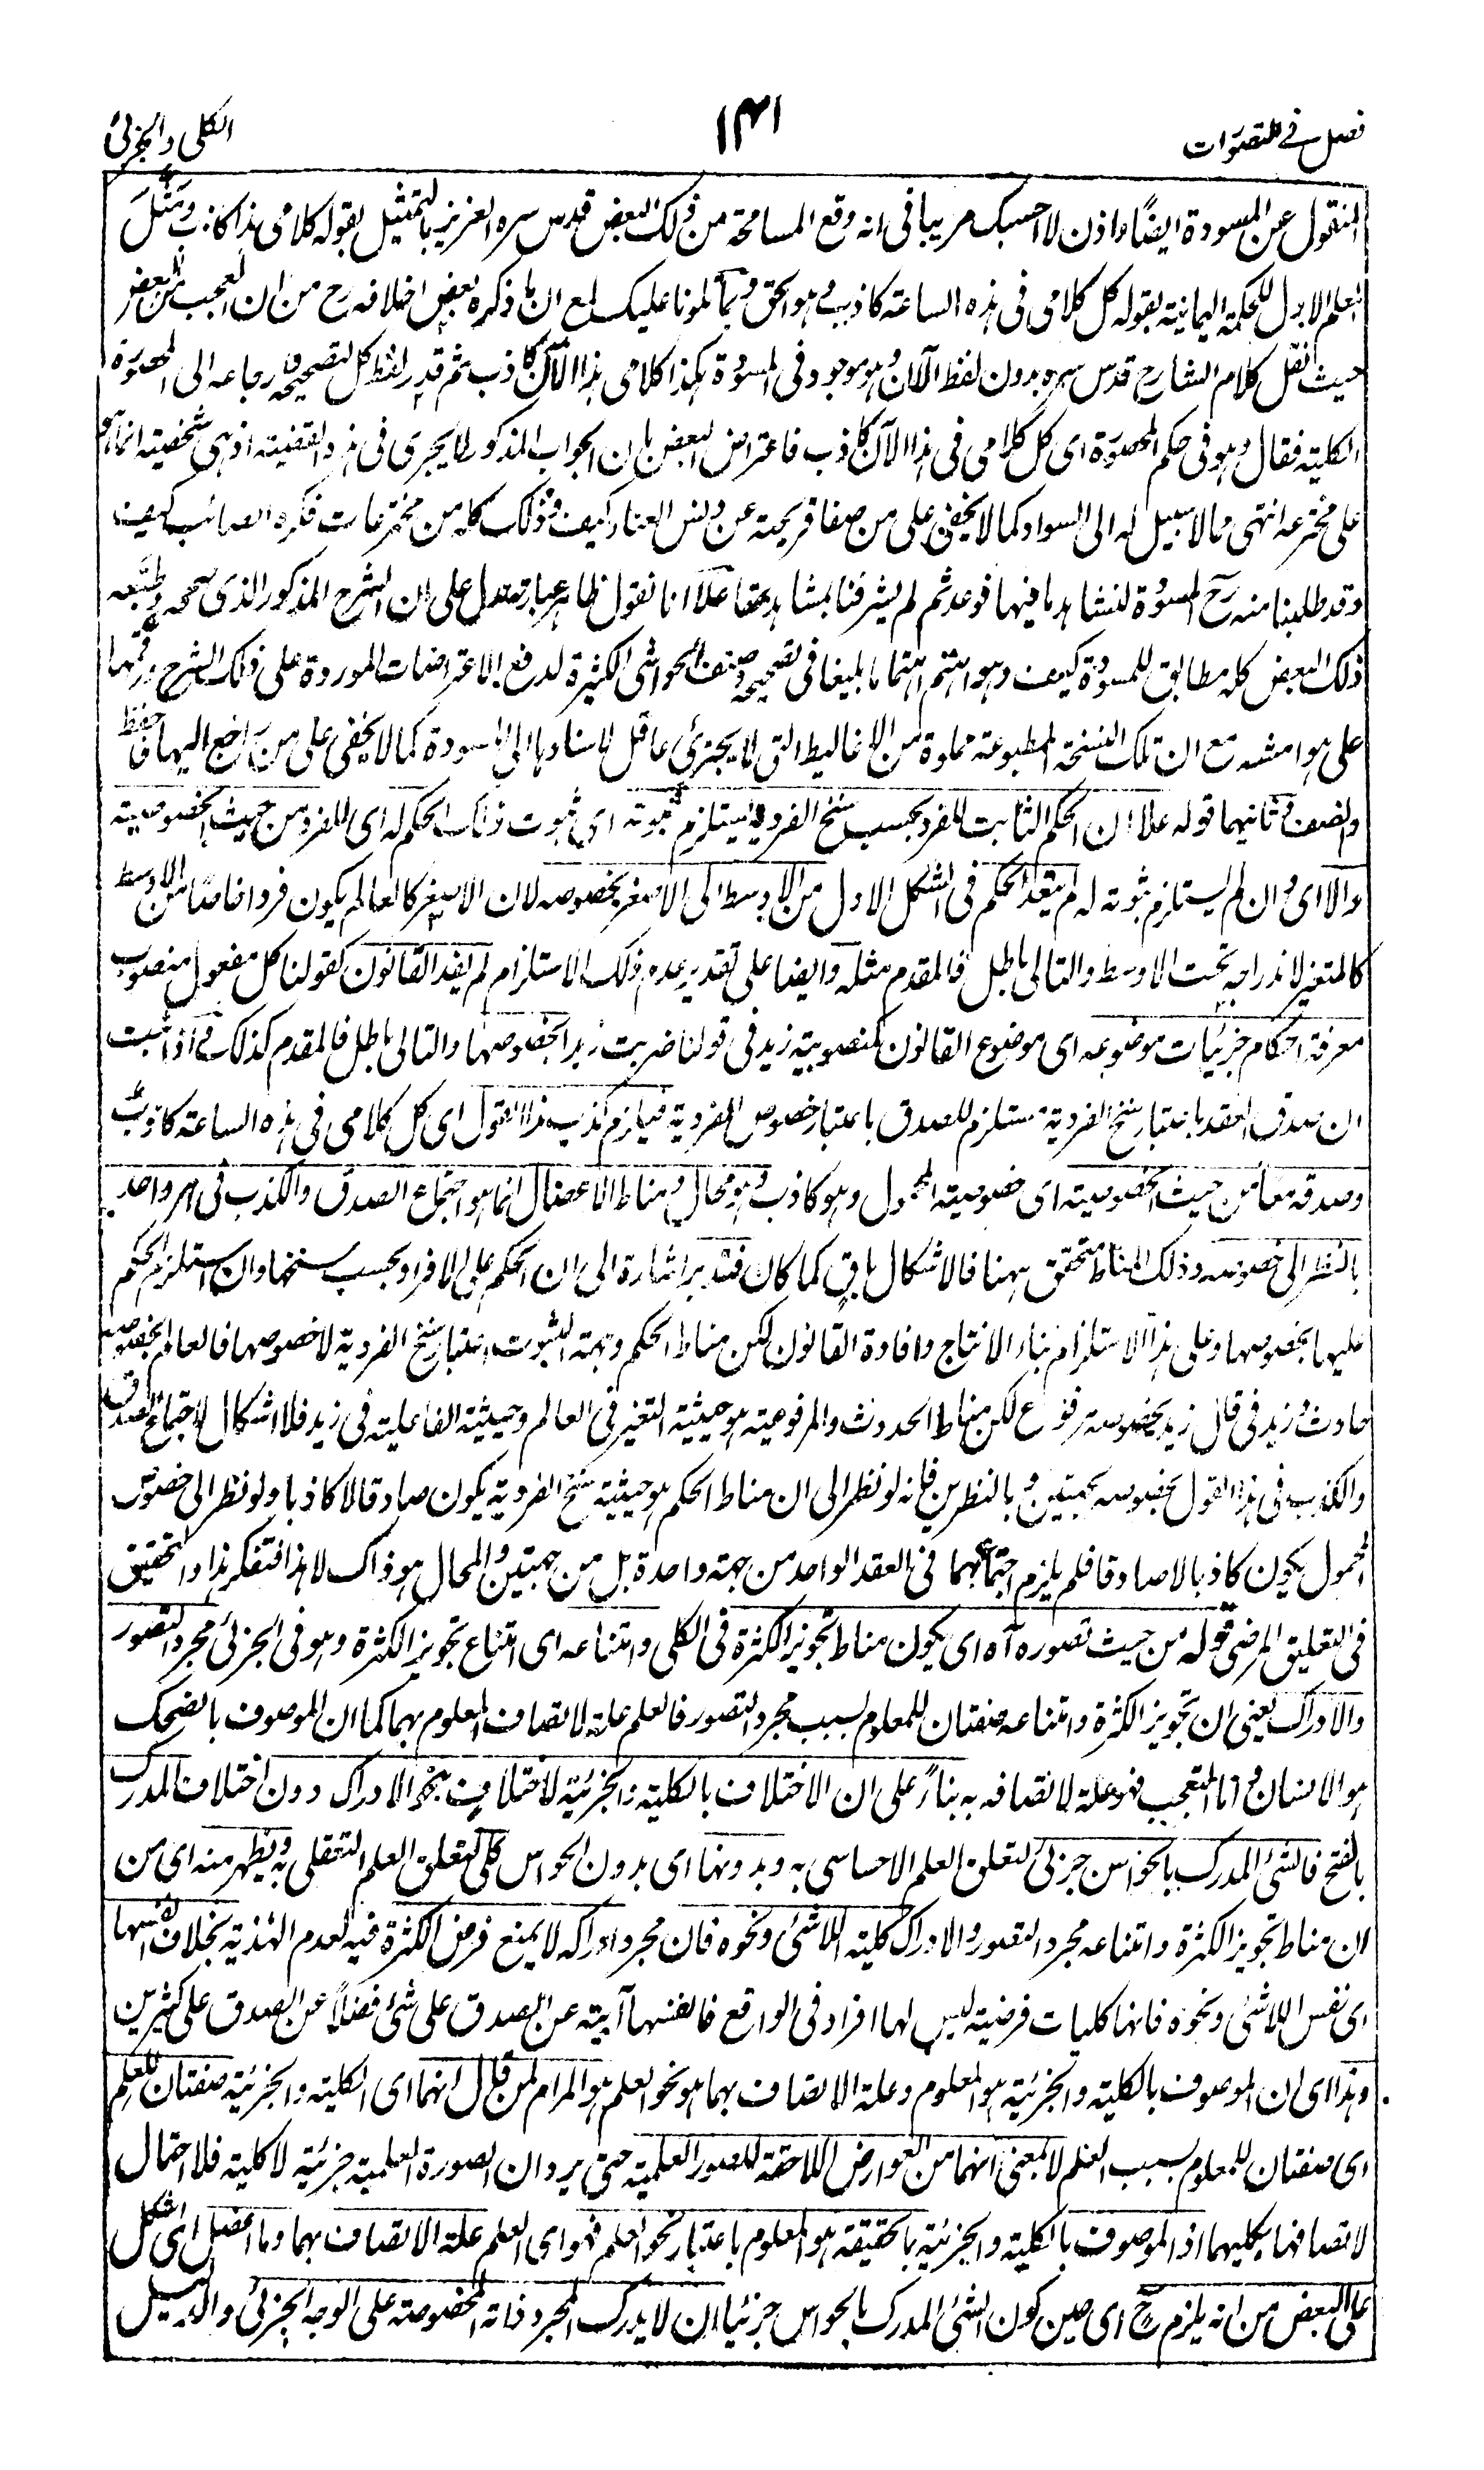 فصل في التصورات
١٤١
الكلي والجزئي
المنقول عن المسودة ايضًا واذن لا احسبك مريبا في انه وقع المسامحة من ذلك البعض قدس سره العزيز بالتمثيل بقوله كلامي هذا كاذب ومثل
المعلم الاول للحكمة اليمانية بقوله كل كلامي في هذه الساعة كاذب وهو الحق وبما تلونا عليك لمع ان ما ذكره بعض اخلافه رح من ان العجب من البعض
حيث نقل كلام الشارح قدس سره بدون لفظ الآن وهو موجود في المسودة هكذا كلامي هذا الآن كاذب ثم قدر لفظ كل لتصحيحه وارجاعه الى المحصورة
الكلية فقال وهو في حكم المحصورة اي كل كلامي في هذا الآن كاذب فاعتراض البعض بان الجواب المذكور لا يجري في هذه القضية اذ هي شخصية انما هو
على مخترعه انتهى مما لا سبيل له الى السواد كما لا يخفى على من صفا قريحته عن دنس العناد كيف وذلك كله من مخترعات فكره الصائب كيف
وقد طلبنا منه رح المسودة لنشاهد ما فيها فوعد ثم لم يشرفنا بمشاهدتها علا انا نقول ظاهر عبارته تدل على ان الشرح المذكور الذي صححه وطبعه
ذلك البعض كله مطابق للمسودة كيف وهو اهتم اهتماما بليغا في تصحيحه وصنف الحواشي الكثيرة لدفع الاعتراضات الموردة على ذلك الشرح ورقمها
على هوامشه مع ان تلك النسخة المطبوعة مملوة من الاغاليط التي لا يجترئ عاقل لاسنادها الى المسودة كما لا يخفى على من راجع اليها فاحفظ
وانصف وثانيهما قوله علا ان الحكم الثابت للفرد بحسب سنخ الفردية يستلزم ثبوته اي ثبوت ذلك الحكم له اي للفرد من حيث الخصوصية
والا اي وان لم يستلزم ثبوته له لم يتعد الحكم في الشكل الاول من الاوسط الى الاصغر بخصوصه لان الاصغر كالعالم يكون فردا خاصًا من الاوسط
كالمتغير لاندراجه تحت الاوسط والتالي باطل فالمقدم مثله وايضا على تقدير عدم ذلك الاستلزام لم يفد القانون كقولنا كل مفعول منصوب
معرفة احكام جزئيات موضوعه اي موضوع القانون كمنصوبية زيد في قولنا ضربت زيدا بخصوصها والتالي باطل فالمقدم كذلك فح اذا ثبت
ان صدق العقد باعتبار سنخ الفردية مستلزم للصدق باعتبار خصوص الفردية فيلزم كذب هذا القول اي كل كلامي في هذه الساعة كاذب
وصدقه معا من حيث الخصوصية اي خصوصية المحمول وهو كاذب وهو محال ومناط الاعضال انما هو اجتماع الصدق والكذب في امر واحد
بالنظر الى خصوصه وذلك المناط متحقق ههنا فالاشكال باق كما كان فتدبر اشارة الى ان الحكم على الافراد بحسب سنخها وان استلزم الحكم
عليها بخصوصها وعلى هذا الاستلزام بناء الانتاج وافادة القانون لكن مناط الحكم وجهة الثبوت اعتبار سنخ الفردية لا خصوصها فالعالم بخصوصه
حادث وزيد في قال زيد بخصوصه مرفوع لكن مناط الحدوث والمرفوعية هو حيثية التغير في العالم وحيثية الفاعلية في زيد فلا اشكال لاجتماع الصدق
والكذب في هذا القول بخصوصه بجهتين وبالنظرين فانه لو نظر الى ان مناط الحكم هو حيثية سنخ الفردية يكون صادقا لا كاذبا ولو نظر الى خصوص
المحمول يكون كاذبا لا صادقا فلم يلزم اجتماعهما في العقد الواحد من جهة واحدة بل من جهتين والمحال هو ذاك لا هذا فتفكر هذا والتحقيق
في التعليق المرضي قوله من حيث تصوره آه اي يكون مناط تجويز الكثرة في الكلي وامتناعه اي امتناع تجويز الكثرة وهو في الجزئي مجرد التصور
والادراك يعني ان تجويز الكثرة وامتناعه صفتان للمعلوم بسبب مجرد التصور فالعلم علة لاتصاف المعلوم بهما كما ان الموصوف بالضحك
هو الانسان واما التعجب فهو علة لاتصافه به بناءً على ان الاختلاف بالكلية والجزئية لاختلاف نحو الادراك دون اختلاف المدرك
بالفتح فالشئ المدرك بالحواس جزئي لتعلق العلم الاحساسي به وبدونها اي بدون الحواس كلي لتعلق العلم التعقلي به ويظهر منه اي من
ان مناط تجويز الكثرة وامتناعه مجرد التصور والادراك كلية اللاشئ ونحوه فان مجرد ادراكه لا يمنع فرض الكثرة فيه لعدم الهذية بخلاف انفسها
اي نفس اللاشئ ونحوه فانها كليات فرضية ليس لها افراد في الواقع فانفسها آبية عن الصدق على شئ فضلًا عن الصدق على كثيرين
وهذا اي ان الموصوف بالكلية والجزئية هو المعلوم وعلة الاتصاف بهما هو نحو العلم هو المرام لمن قال انهما اي الكلية والجزئية صفتان للعلم
اي صفتان للمعلوم بسبب العلم لا بمعنى انهما من العوارض اللاحقة للصور العلمية حتى يرد ان الصورة العلمية جزئية لا كلية فلا احتمال
لاتصافها بكليهما اذ الموصوف بالكلية والجزئية بالحقيقة هو المعلوم باعتبار نحو العلم فهو اي العلم علة الاتصاف بهما وما اعضل اي اشكل
على البعض من انه يلزم ح اي حين كون الشئ المدرك بالحواس جزئيا ان لا يدرك المجرد ذاته المخصوصة على الوجه الجزئي والدليل